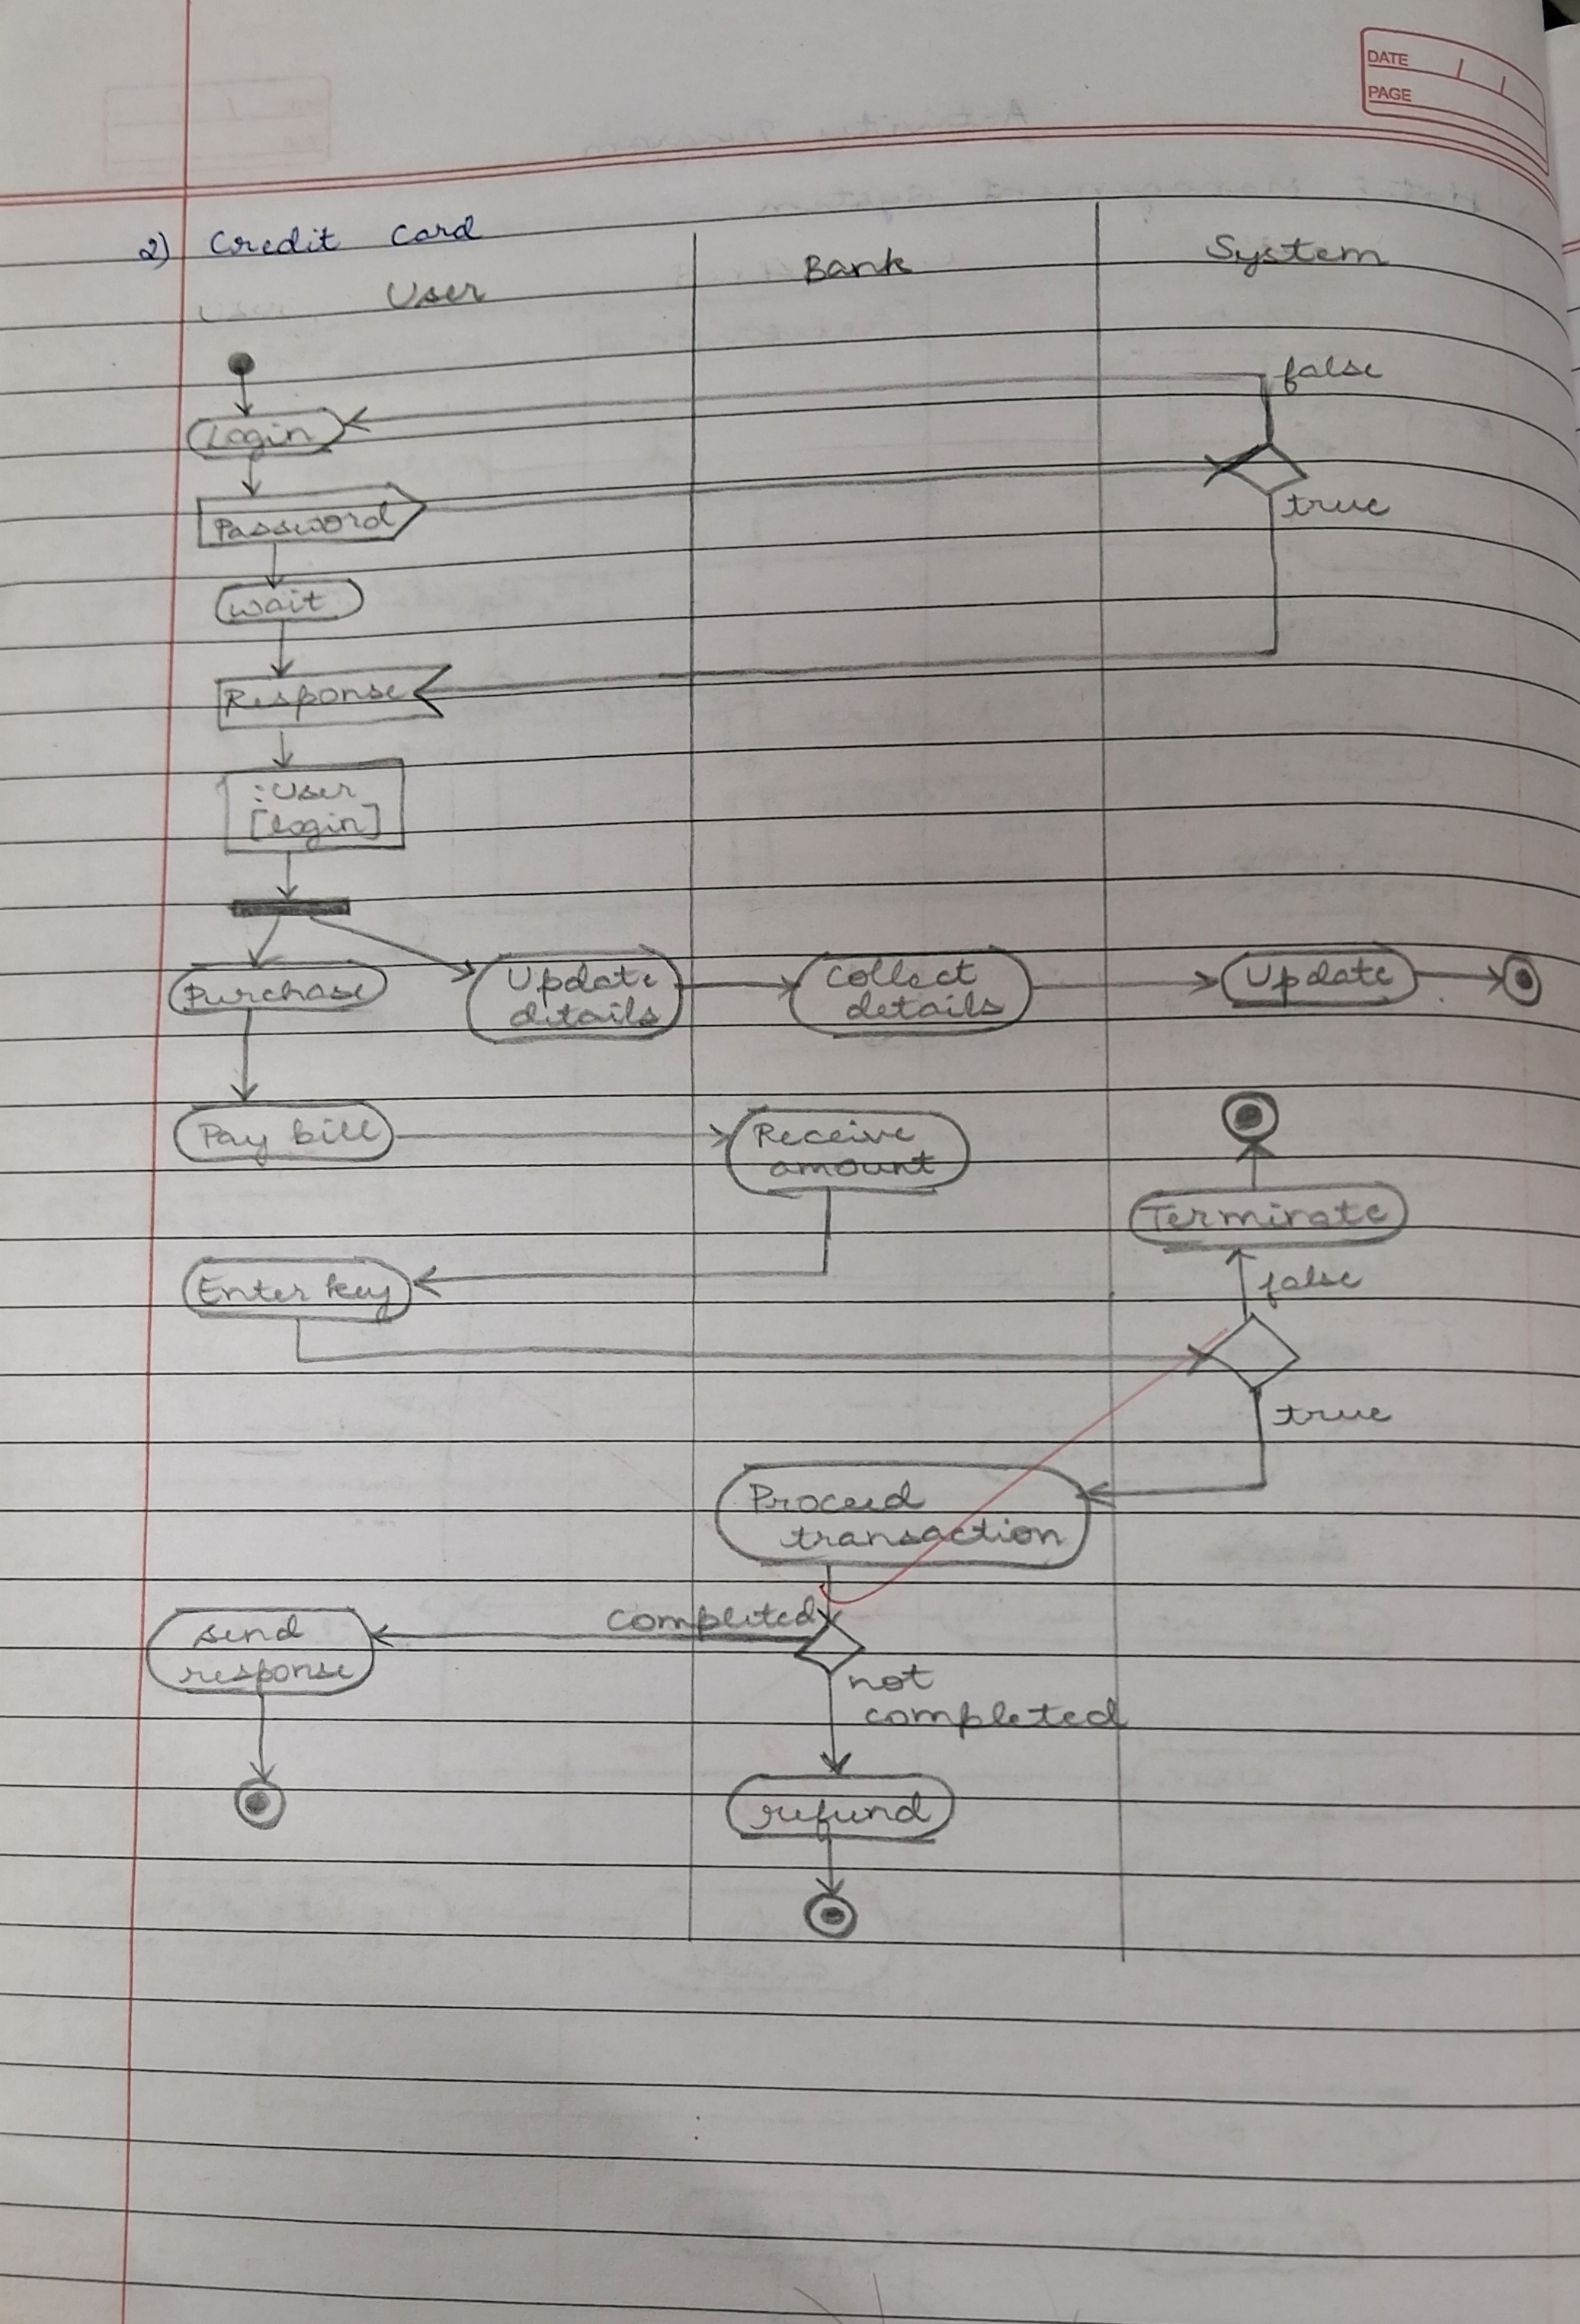 DATE
PAGE
2) Credit Card
User
Bank
System
false
Login
true
Password
wait
Response
:User
[login]
Purchase
Update
details
Collect
details
Update
Pay bill
Receive
amount
Terminate
Enter key
false
true
Proceed
transaction
completed
send
response
not
completed
refund